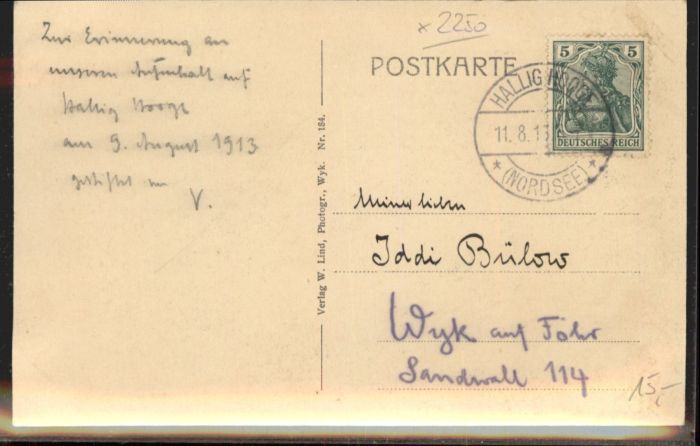 x 2250
Zur Erinnerung an
unseren Aufenthalt auf
Hallig Hooge
am 9. August 1913
gestiftet von
V.
Verlag W. Lind, Photogr., Wyk. Nr. 184.
POSTKARTE
HALLIG HOOGE
11.8.13
★ (NORDSEE) ★
5 5
DEUTSCHES REICH
Meiner lieben
Iddi Bülow
Wyk auf Föhr
Sandwall 114
15,-